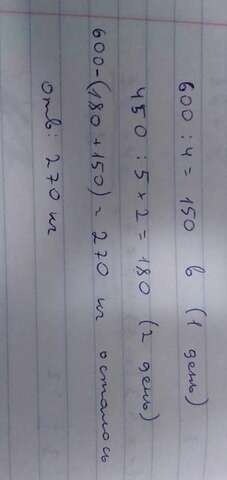 600 : 4 = 150 в (1 день)
450 : 5 × 2 = 180 (2 день)
600-(180 + 150) = 270 кг осталось
отв: 270 кг